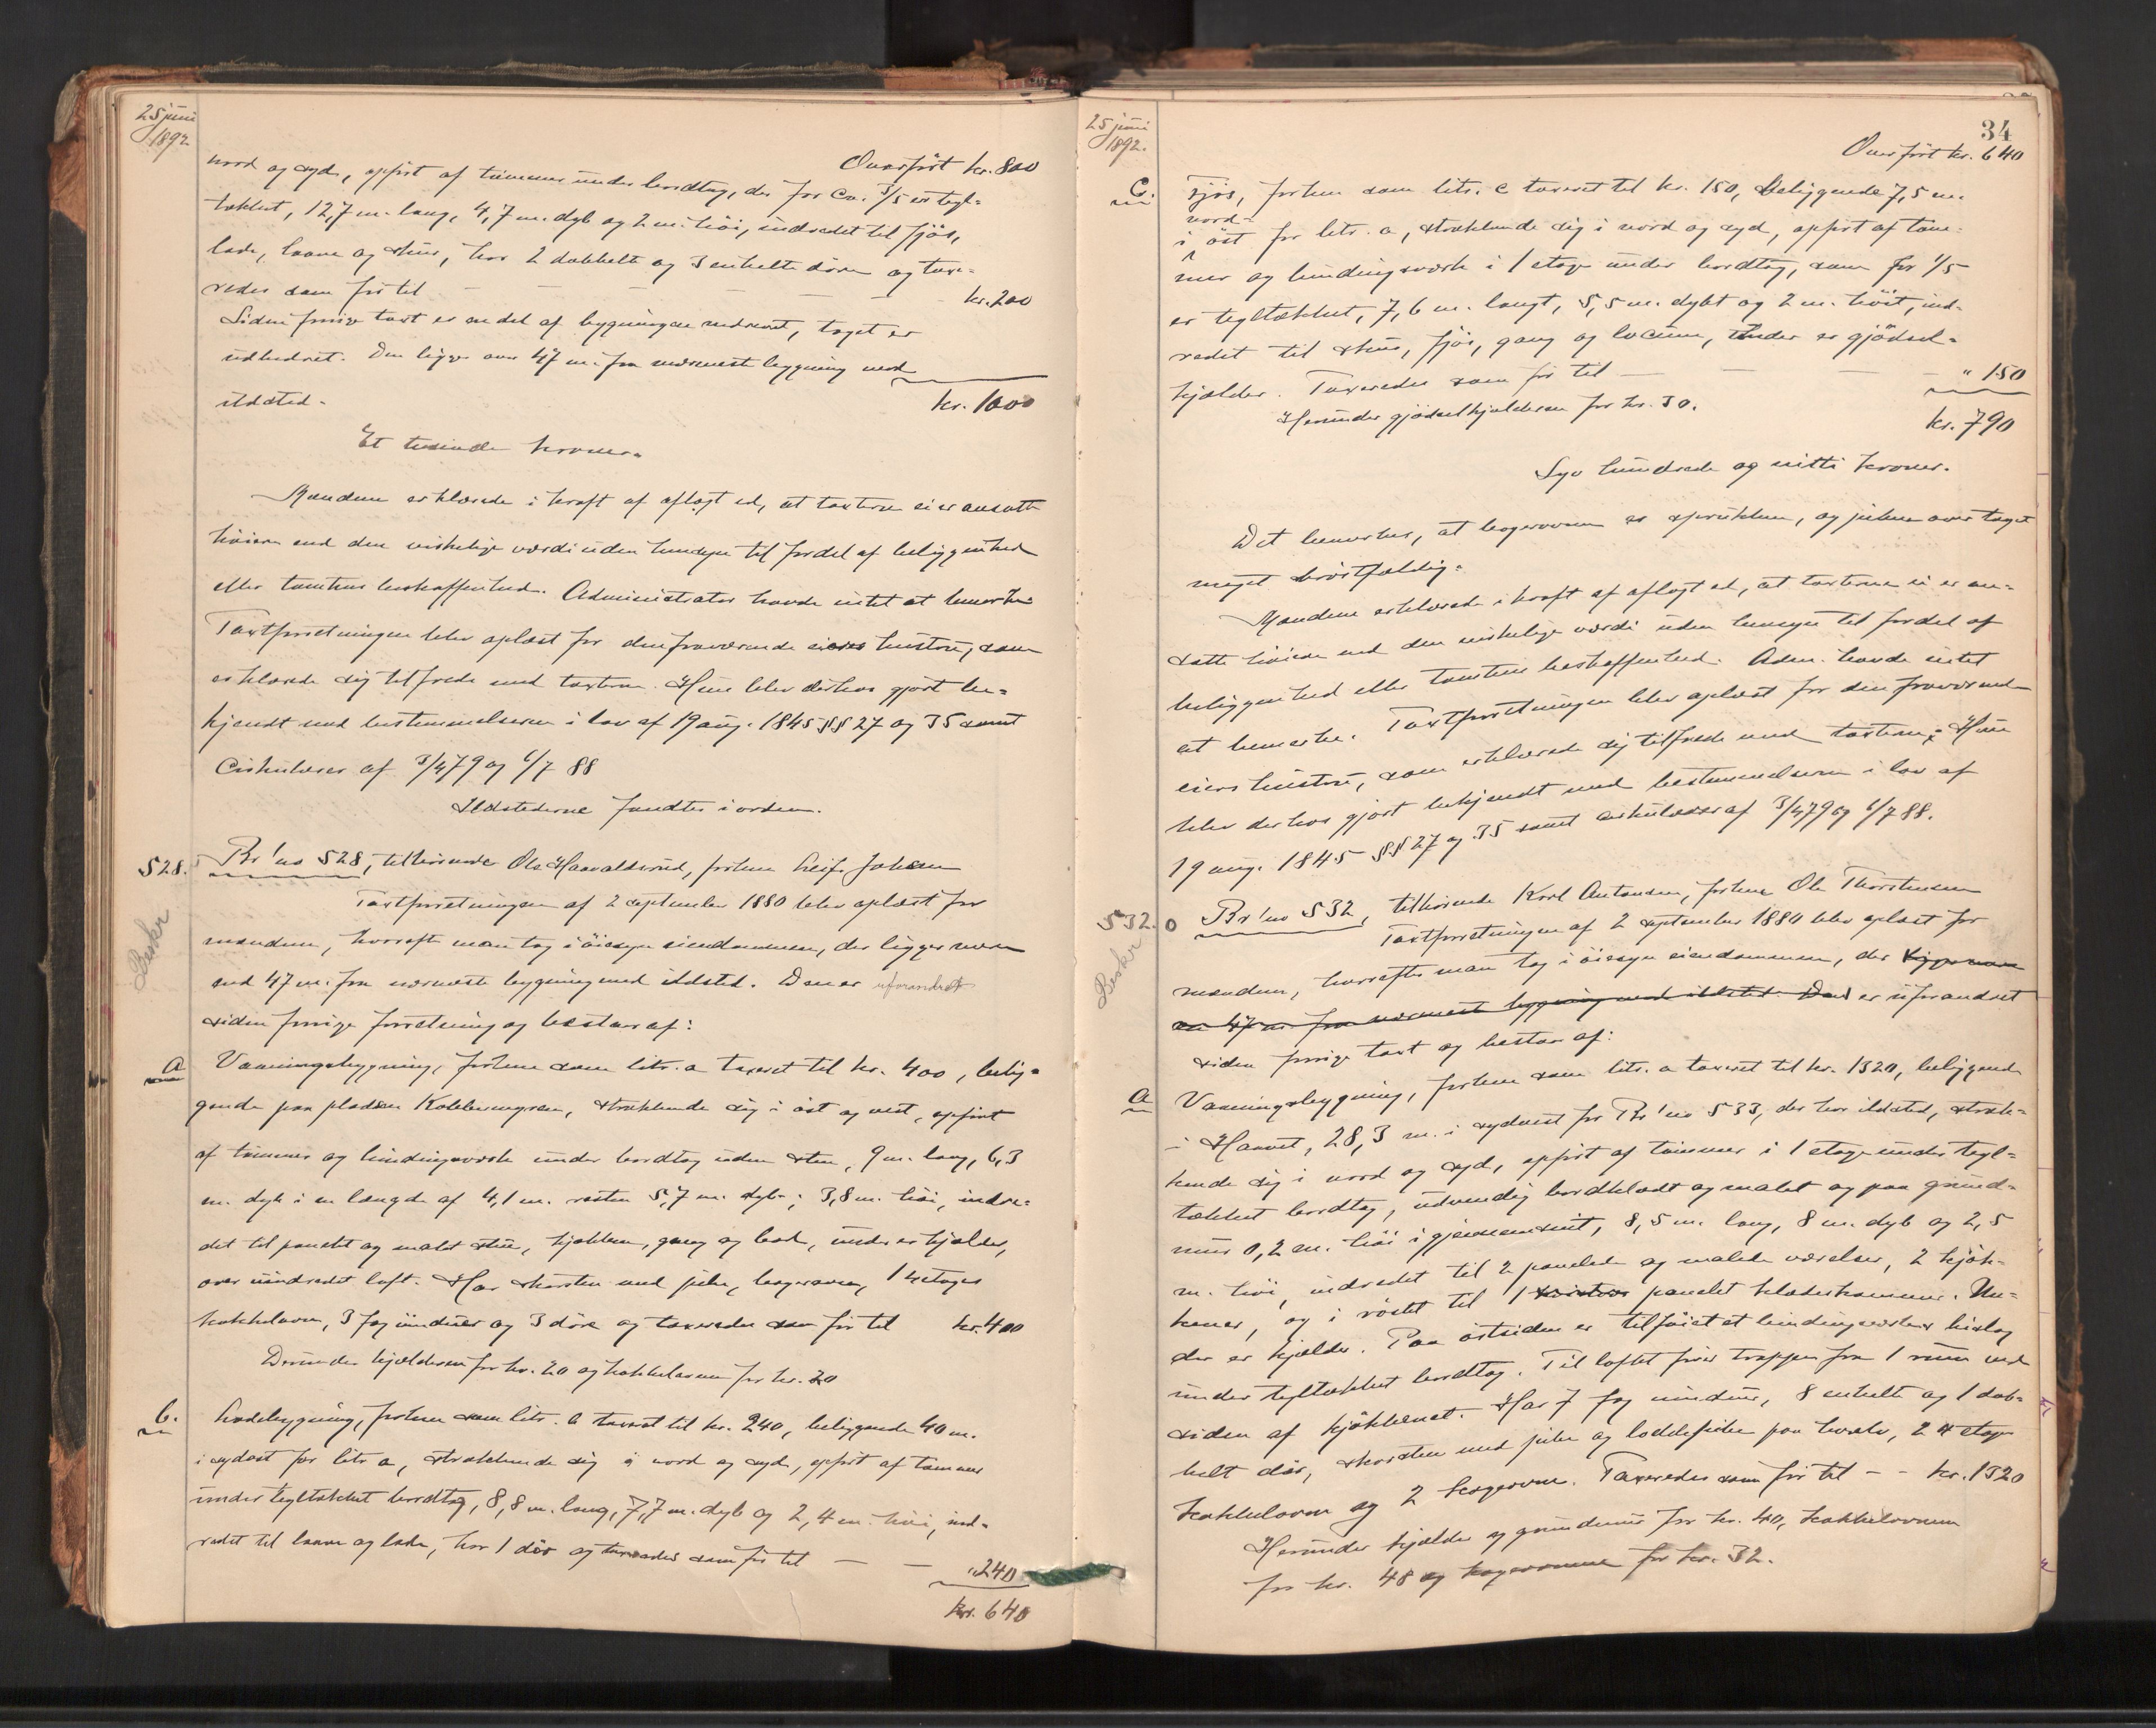 25 juni
1892
Overført kr. 800
nord og syd, opført af tømmer under bordtag, der for ca. 3/5 er tegl-
tækket, 12,7 m. lang, 4,7 m. dyb og 2 m. høi, indredet til fjøs,
lade, laave og skur, har 2 dobbelte og 3 enkelte døre og taxe-
redes som før til — — — — — kr. 200
Siden forrige taxt er en del af bygningen nedrevet, taget er
udbedret. Den ligger over 47 m. fra nærmeste bygning med
ildsted.
kr. 1000
Et tusinde kroner.
Mændene erklærede i kraft af aflagt ed, at taxterne ei er ansatte
høiere end den virkelige værdi uden hensyn til fordel af beliggenhed
eller tomtens beskaffenhed. Administrator havde intet at bemærke.
Taxtforretningen blev oplæst for den fraværende eiers hustru, som
erklærede sig tilfreds med taxterne. Hun blev derhos gjort be-
kjendt med bestemmelserne i lov af 19 aug. 1845 §§ 27 og 35 samt
Cirkulærer af 3/4 79 og 6/7 88
Ildstederne fandtes i orden.
528.
Br. no 528, tilhørende Ole Haavaldsrud, forhen Leif Johsen
Taxtforretningen af 2 september 1880 blev oplæst for
Beskr
mændene, hvorefter man tog i øiesyn eiendommen, der ligger mere
end 47 m. fra nærmeste bygning med ildsted. Den er uforandret
siden forrige forretning og bestaar af:
a
Vaaningsbygning, forhen som litr. a taxeret til kr. 400, belig-
gende paa pladsen Kobbermyren, strækkende sig i øst og vest, opført
af tømmer og bindingsværk under bordtag uden sten, 9 m. lang, 6,3
m. dyb i en længde af 4,1 m. resten 5,7 m. dyb; 3,8 m. høi, indre-
det til panelet og malet stue, kjøkken, gang og bod, under er kjælder,
over uindredet loft. Har skorsten med pibe, bagerovn, 1 4etages
kakkelovn, 3 fag vinduer og 3 døre og taxeredes som før til kr. 400
Derunder kjælderen for kr. 20 og kakkelovnen for kr. 20
b.
Ladebygning, forhen som litr. b taxeret til kr. 240, beliggende 40 m.
i sydøst for litr a, strækkende sig i nord og syd, opført af tømmer
under tegltækket bordtag, 8,8 m. lang, 7,7 m. dyb og 2,4 m. høi, ind-
redet til laave og lade, har 1 dør og taxeredes som før til — — " 240
kr. 640
25 juni
1892.
34
Overført kr. 640
c.
Fjøs, forhen som litr. c taxeret til kr. 150, beliggende 7,5 m.
nord-
i øst for litr. a, strækkende sig i nord og syd, opført af tøm-
mer og bindingsværk i 1 etage under bordtag, som for 1/5
er tegltækket, 7,6 m. langt, 5,5 m. dybt og 2 m. høit, ind-
redet til skur, fjøs, gang og locum, under er gjødsel-
kjælder. Taxeredes som før til — — — — " 150
Herunder gjødselkjælderen for kr. 30.
kr. 790
Syv hundrede og nitti kroner.
Det bemærkes, at bagerovnen er sprukken, og piben over taget
meget brøstfældig.
Mændene erklærede i kraft af aflagt ed, at taxterne ei er an-
satte høiere end den virkelige værdi uden hensyn til fordel af
beliggenhed eller tomtens beskaffenhed. Adm. havde intet
at bemærke. Taxtforretningen blev oplæst for den fraværende
eiers hustru, som erklærede sig tilfreds med taxterne; Hun
blev derhos gjort bekjendt med bestemmelserne i lov af
19 aug. 1845 §§ 27 og 35 samt cirkulærer af 3/4 79 og 6/7 88.
532.
o Br. no 532, tilhørende Karl Antonsen, forhen Ole Thorstensen
Taxtforretningen af 2 september 1880 blev oplæst for
Beskr
mændene, hvorefter man tog i øiesyn eiendommen, der ligger mere
en 47 m. fra nærmeste bygning med ildsted. Den er uforandret
siden forrige taxt og bestaar af:
a
Vaaningsbygning, forhen som litr. a taxeret til kr. 1320, beliggende
i Haavet, 28,3 m. i sydvest for Br. no 533, der har ildsted, stræk-
kende sig i nord og syd, opført af tømmer i 1 etage under tegl-
tækket bordtag, udvendig bordklædt og malet og paa grund-
mur 0,2 m. høi i gjennemsnit, 8,5 m. lang, 8 m. dyb og 2,5
m. høi, indredet til 2 panelede og malede værelser, 2 kjøk-
kener, og i røstet til 1 panelet klædeskammer. Un-
der er kjælder. Paa østsiden er tilføiet et bindingsværks bislag
under tegltækket bordtag. Til loftet fører trappe fra 1 rum ved
siden af kjøkkenet. Har 7 fag vinduer, 8 enkelte og 1 dob-
belt dør, skorsten med pibe og loddepibe paa hvælv, 2 4 etages
kakkelovne og 2 bagerovne. Taxeredes som før til — — kr. 1320
Herunder kjælder og grundmur for kr. 40, kakkelovnene
for kr. 48 og bagerovnene for kr. 32.